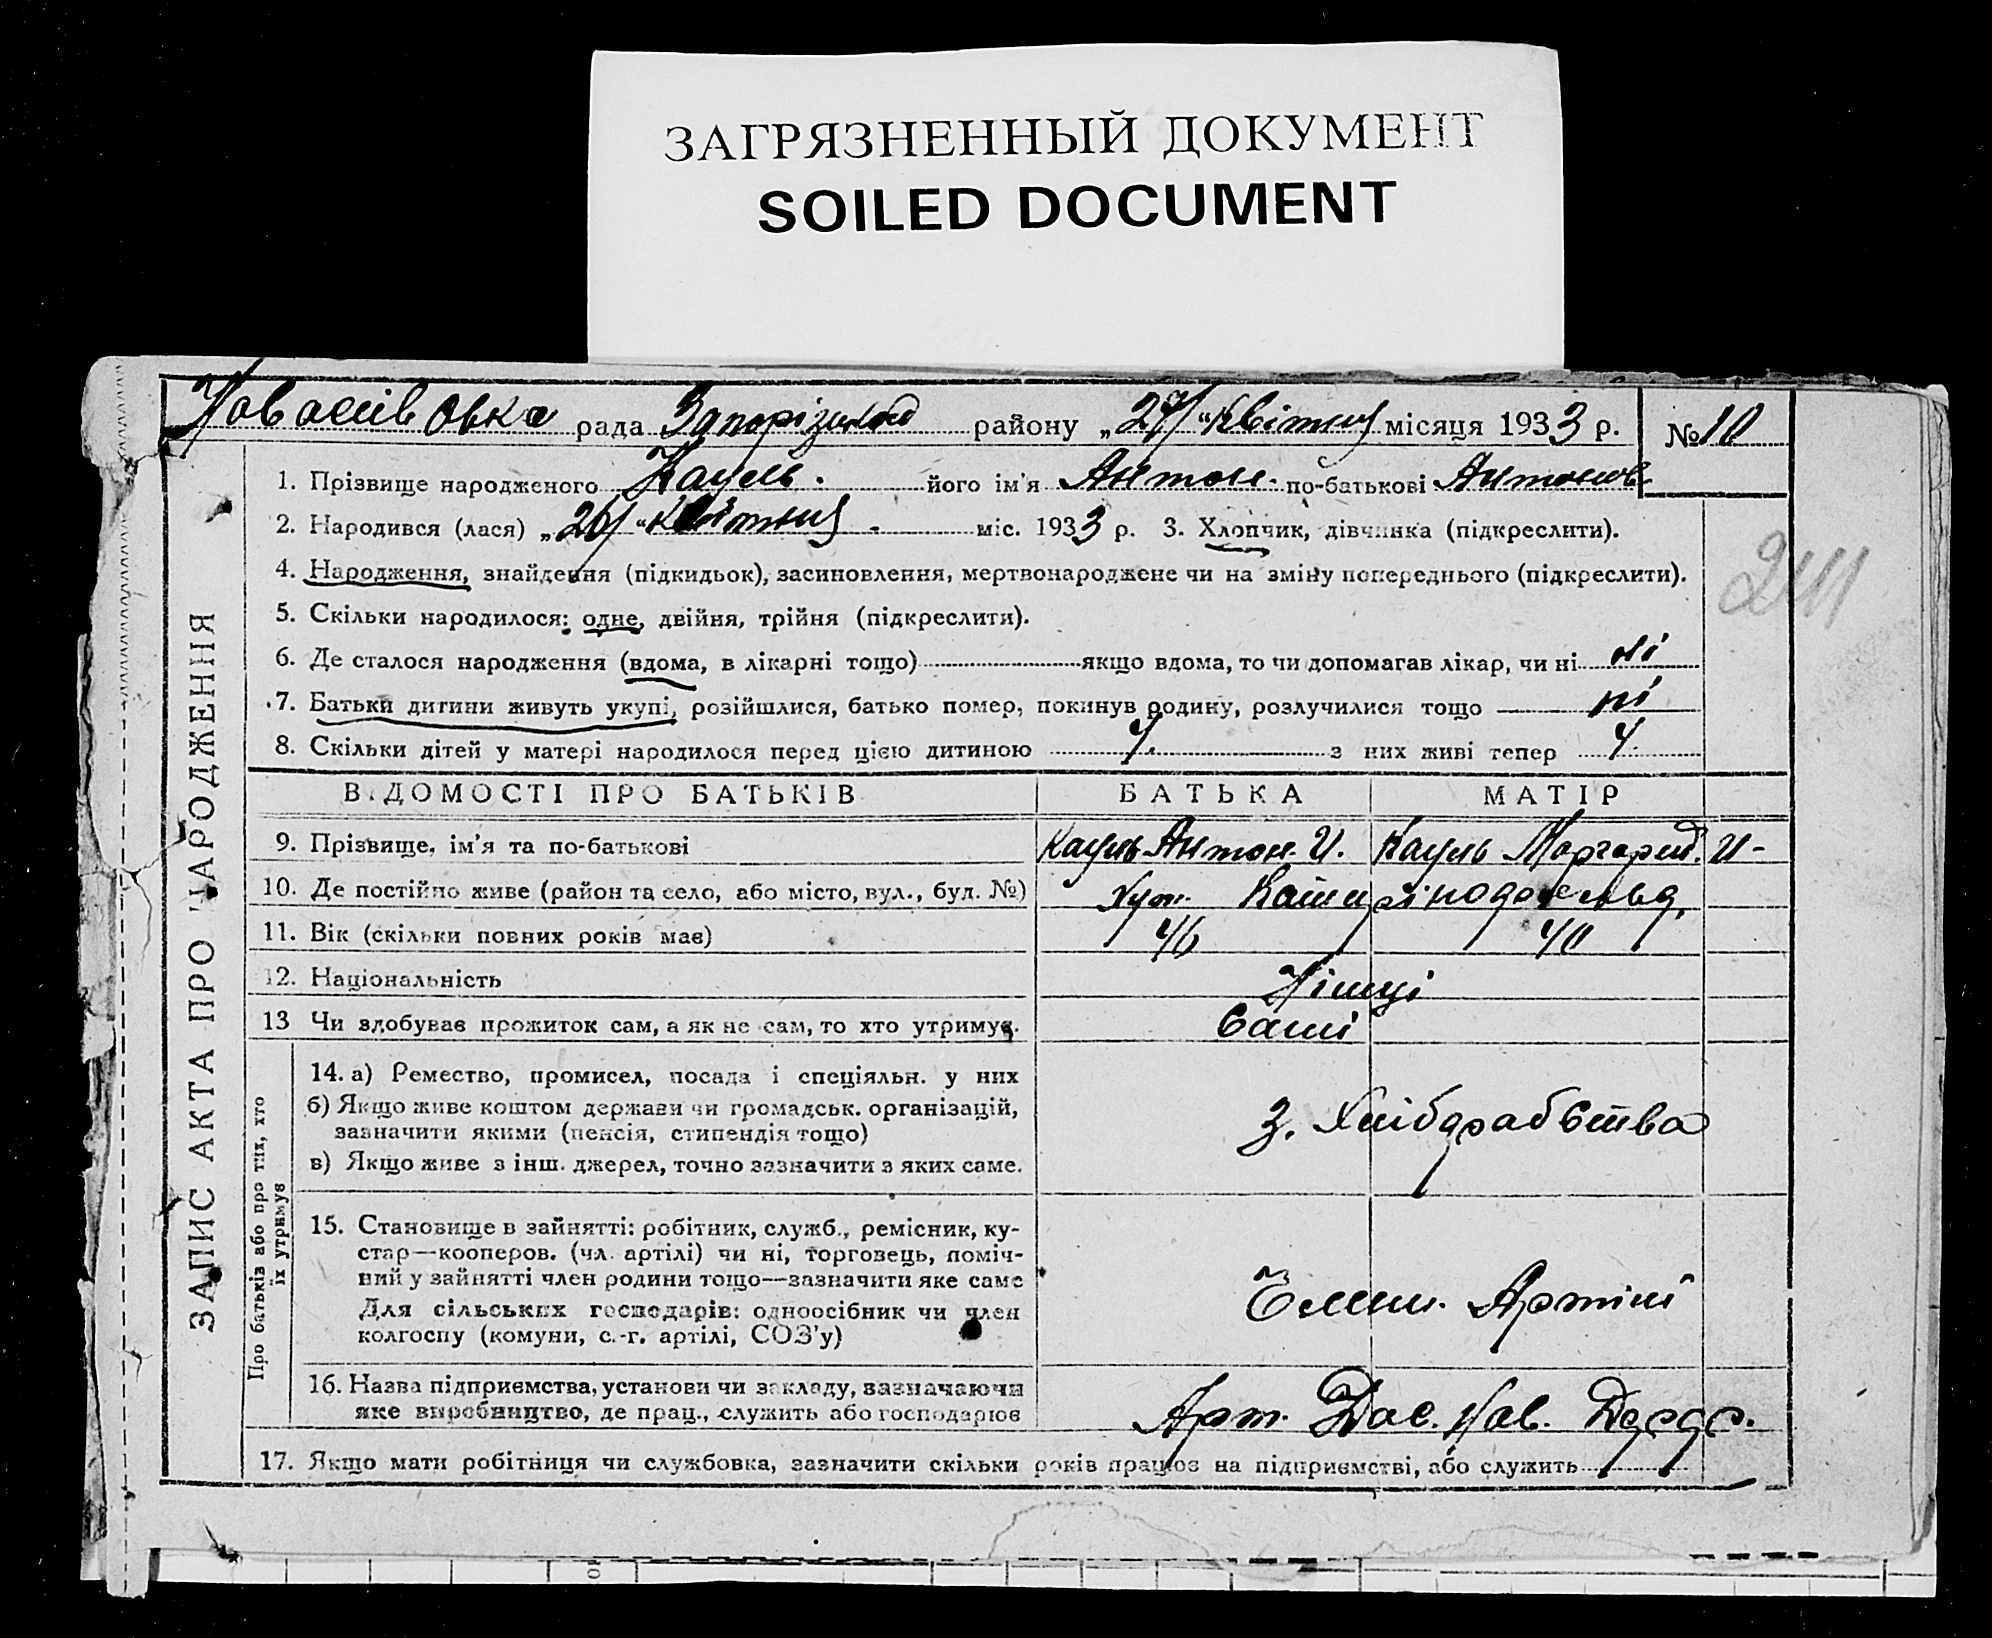 ЗАГРЯЗНЕННЫЙ ДОКУМЕНТ
SOILED DOCUMENT
рада Запорізького району „27“ Квітня місяця 1933 р. № 10
1. Прізвище народженого Кауль. його ім'я Антон. по-батькові Антонов.
2. Народився (лася) „26“ Квітня міс. 1933 р. 3. Хлопчик, дівчинка (підкреслити).
4. Народження, знайдення (підкидьок), засиновлення, мертвонароджене чи на зміну попереднього (підкреслити).
5. Скільки народилося: одне, двійня, трійня (підкреслити).
6. Де сталося народження (вдома, в лікарні тощо) якщо вдома, то чи допомагав лікар, чи ні ні
7. Батьки дитини живуть укупі, розійшлися, батько помер, покинув родину, розлучилися тощо — ні
8. Скільки дітей у матері народилося перед цією дитиною 4. з них живі тепер 4.
ВІДОМОСТІ ПРО БАТЬКІВ БАТЬКА МАТІР
9. Прізвище, ім'я та по-батькові Кауль Антон. И. Кауль Маргарид. И-
10. Де постійно живе (район та село, або місто, вул., буд. №) Хут.
11. Вік (скільки повних років має) 46 40
12. Національність Німці
13 Чи здобуває прожиток сам, а як не сам, то хто утримує. Самі
14. а) Ремество, промисел, посада і спеціяльн. у них
б) Якщо живе коштом держави чи громадськ. організацій,
зазначити якими (пенсія, стипендія тощо)
з. Хлібарабства
в) Якщо живе з інш. джерел, точно зазначити з яких саме.
15. Становище в зайнятті: робітник, служб., ремісник, ку-
стар—кооперов. (чл. артілі) чи ні, торговець, поміч-
ний у зайнятті член родини тощо—зазначити яке саме
Члени. Артілі
Для сільських господарів: одноосібник чи член
колгоспу (комуни, с.-г. артілі, СОЗ'у)
16. Назва підприємства, установи чи закладу, зазначаючи
яке виробництво, де прац., служить або господарює Арт.
17. Якщо мати робітниця чи службовка, зазначити скільки років працює на підприємстві, або служить
ЗАПИС АКТА ПРО НАРОДЖЕННЯ
Про батьків або про тих, хто
їх утримує
241